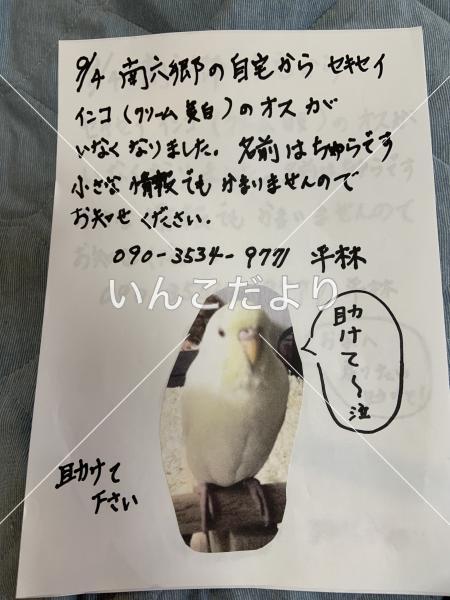 9/4 南六郷の自宅から セキセイ
インコ (クリーム 真白) のオスが
いなくなりました。名前はちゅらです
小さな情報でもかまいませんので
お知せください。
090-3534-9771 平林
いんこだより
助けて〜泣
助けて
下さい